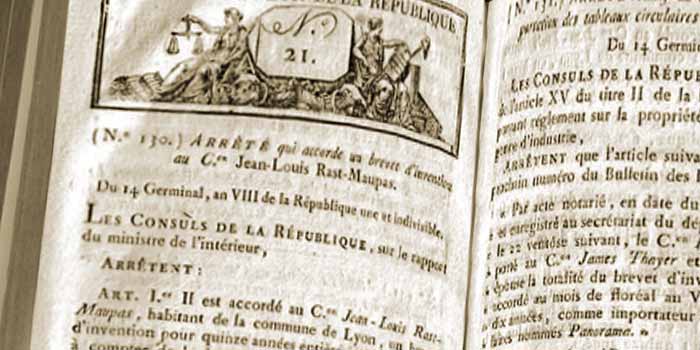 DE LA RÉPUBLIQUE
N.°
21.
(N.° 130.) ARRÊTÉ qui accorde un brevet d'invention
au C.en Jean-Louis Rast-Maupas.
Du 14 Germinal, an VIII de la République une et indivisible.
LES CONSULS DE LA RÉPUBLIQUE, sur le rapport
du ministre de l'intérieur,
ARRÊTENT :
ART. I.er Il est accordé au C.en Jean-Louis Rast-
Maupas, habitant de la commune de Lyon, un
d'invention pour quinze années
à compter de
(N.° 131.)
des tableaux circulaires
Du 14 Germinal
LES CONSULS DE LA RÉPU
de l'article XV du titre II de la
portant réglement sur la propriété
d'industrie,
ARRÊTENT que l'article suiv
prochain numéro du Bulletin des
Par acte notarié, en date du
et enregistré au secrétariat du d
le 22 ventôse suivant, le C.en
au C.en James Thayer et
la totalité du brevet d'inv
accordé au mois de floréal an V
dix années, comme importateur
nommés Panorama.